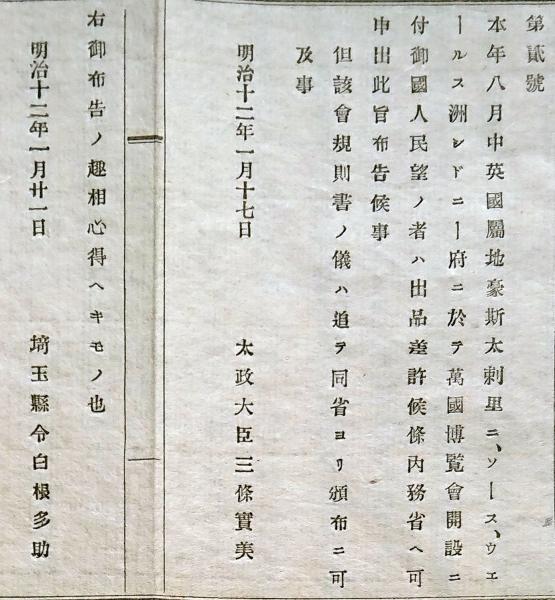 第貳號
本年八月中英國屬地豪斯太剌里ニ、ソース、ウエ
ールス洲シドニー府ニ於テ萬國博覧會開設ニ
付御國人民望ノ者ハ出品差許候條内務省ヘ可
申出此旨布告候事
但該會規則書ノ儀ハ追テ同省ヨリ頒布ニ可
及事
明治十二年一月十七日　太政大臣三條實美
右御布告ノ趣相心得ヘキモノ也
明治十二年一月廿一日　埼玉縣令白根多助